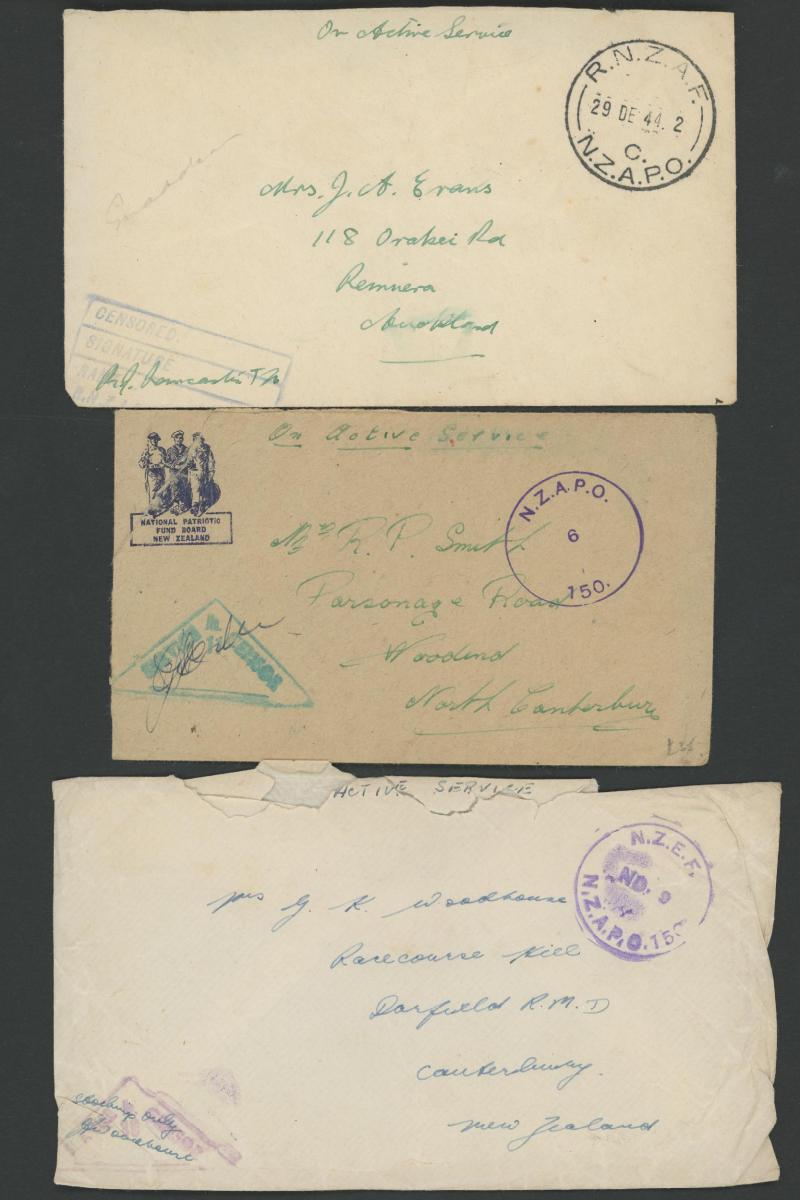 On Active Service
R.N.Z.A.F.
29 DE 44. 2
C.
N.Z.A.P.O.
Mrs. J. A. Evans
118 Orakei Rd
Remuera
Auckland
CENSORED.
SIGNATURE
On Active Service
NATIONAL PATRIOTIC
FUND BOARD
NEW ZEALAND
N.Z.A.P.O.
6
150.
Mrs R. P. Smith
Parsonage Road
Woodend
North Canterbury
ACTIVE SERVICE
N.Z.E.F.
NO. 9
N.Z.A.P.O. 150
Mrs G. K. Woodhouse
Racecourse Hill
Darfield R.M.D
Canterbury.
New Zealand
only
Woodhouse